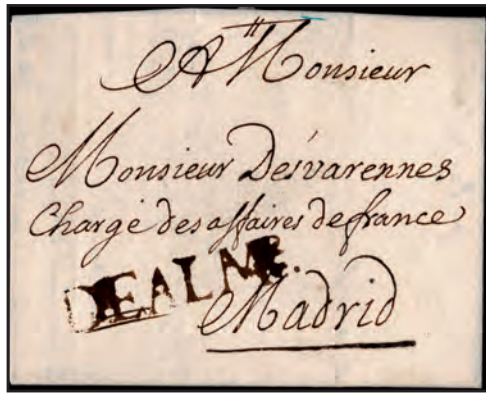 A Monsieur
Monsieur Desvarennes
Chargé des affaires de france
DE ALMR.
Madrid